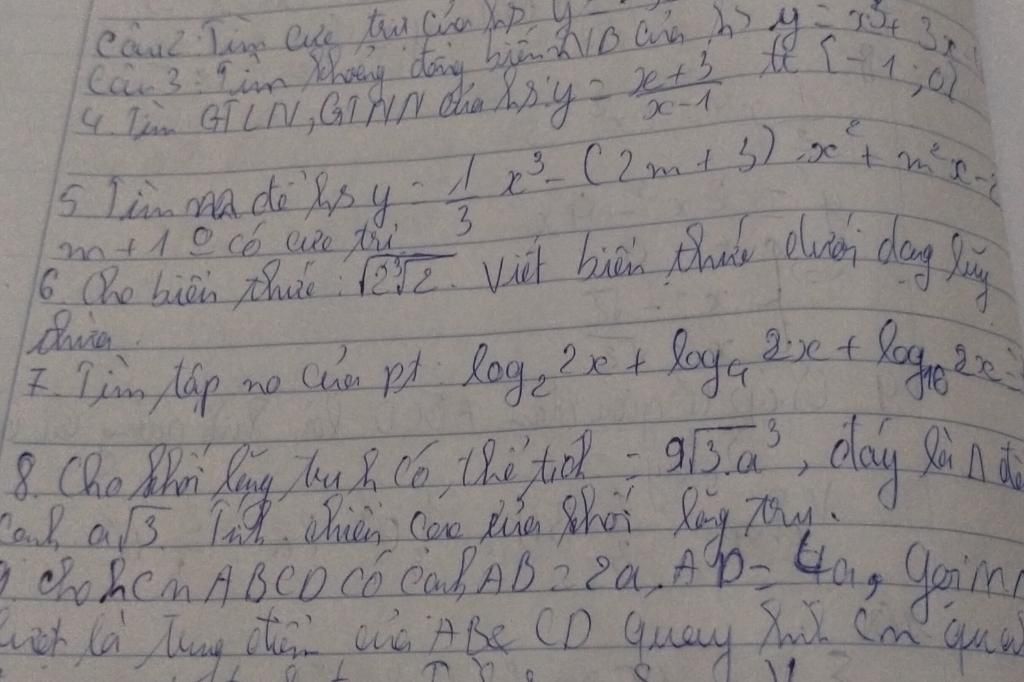 Câu 2 Tìm cực trị của hs y =
Câu 3: Tìm khoảng đồng biến N/B của hs y = x³ + 3x
4. Tìm GTLN, GTNN của hs y = \frac{x+3}{x-1} tt [-1; 0]
5 Tìm m để hs y = \frac{1}{3} x³ - (2m + 3) x² + m²x -
m + 1 có cực trị
6. Cho biểu thức: \sqrt{2\sqrt[3]{2}}. Viết biểu thức dưới dạng lũy
thừa.
7. Tìm tập no của pt: log₂ 2x + log₄ 2x + log₁₆ 2x =
8. Cho khối lăng trụ có thể tích = 9\sqrt{3}.a³, đáy là Δ đề
cạnh a\sqrt{3} Tính chiều cao của khối lăng trụ.
Cho hcn ABCD có cạnh AB = 2a, AD = 4a, gọi M
lượt là trung điểm của AB & CD quay hình cn qua